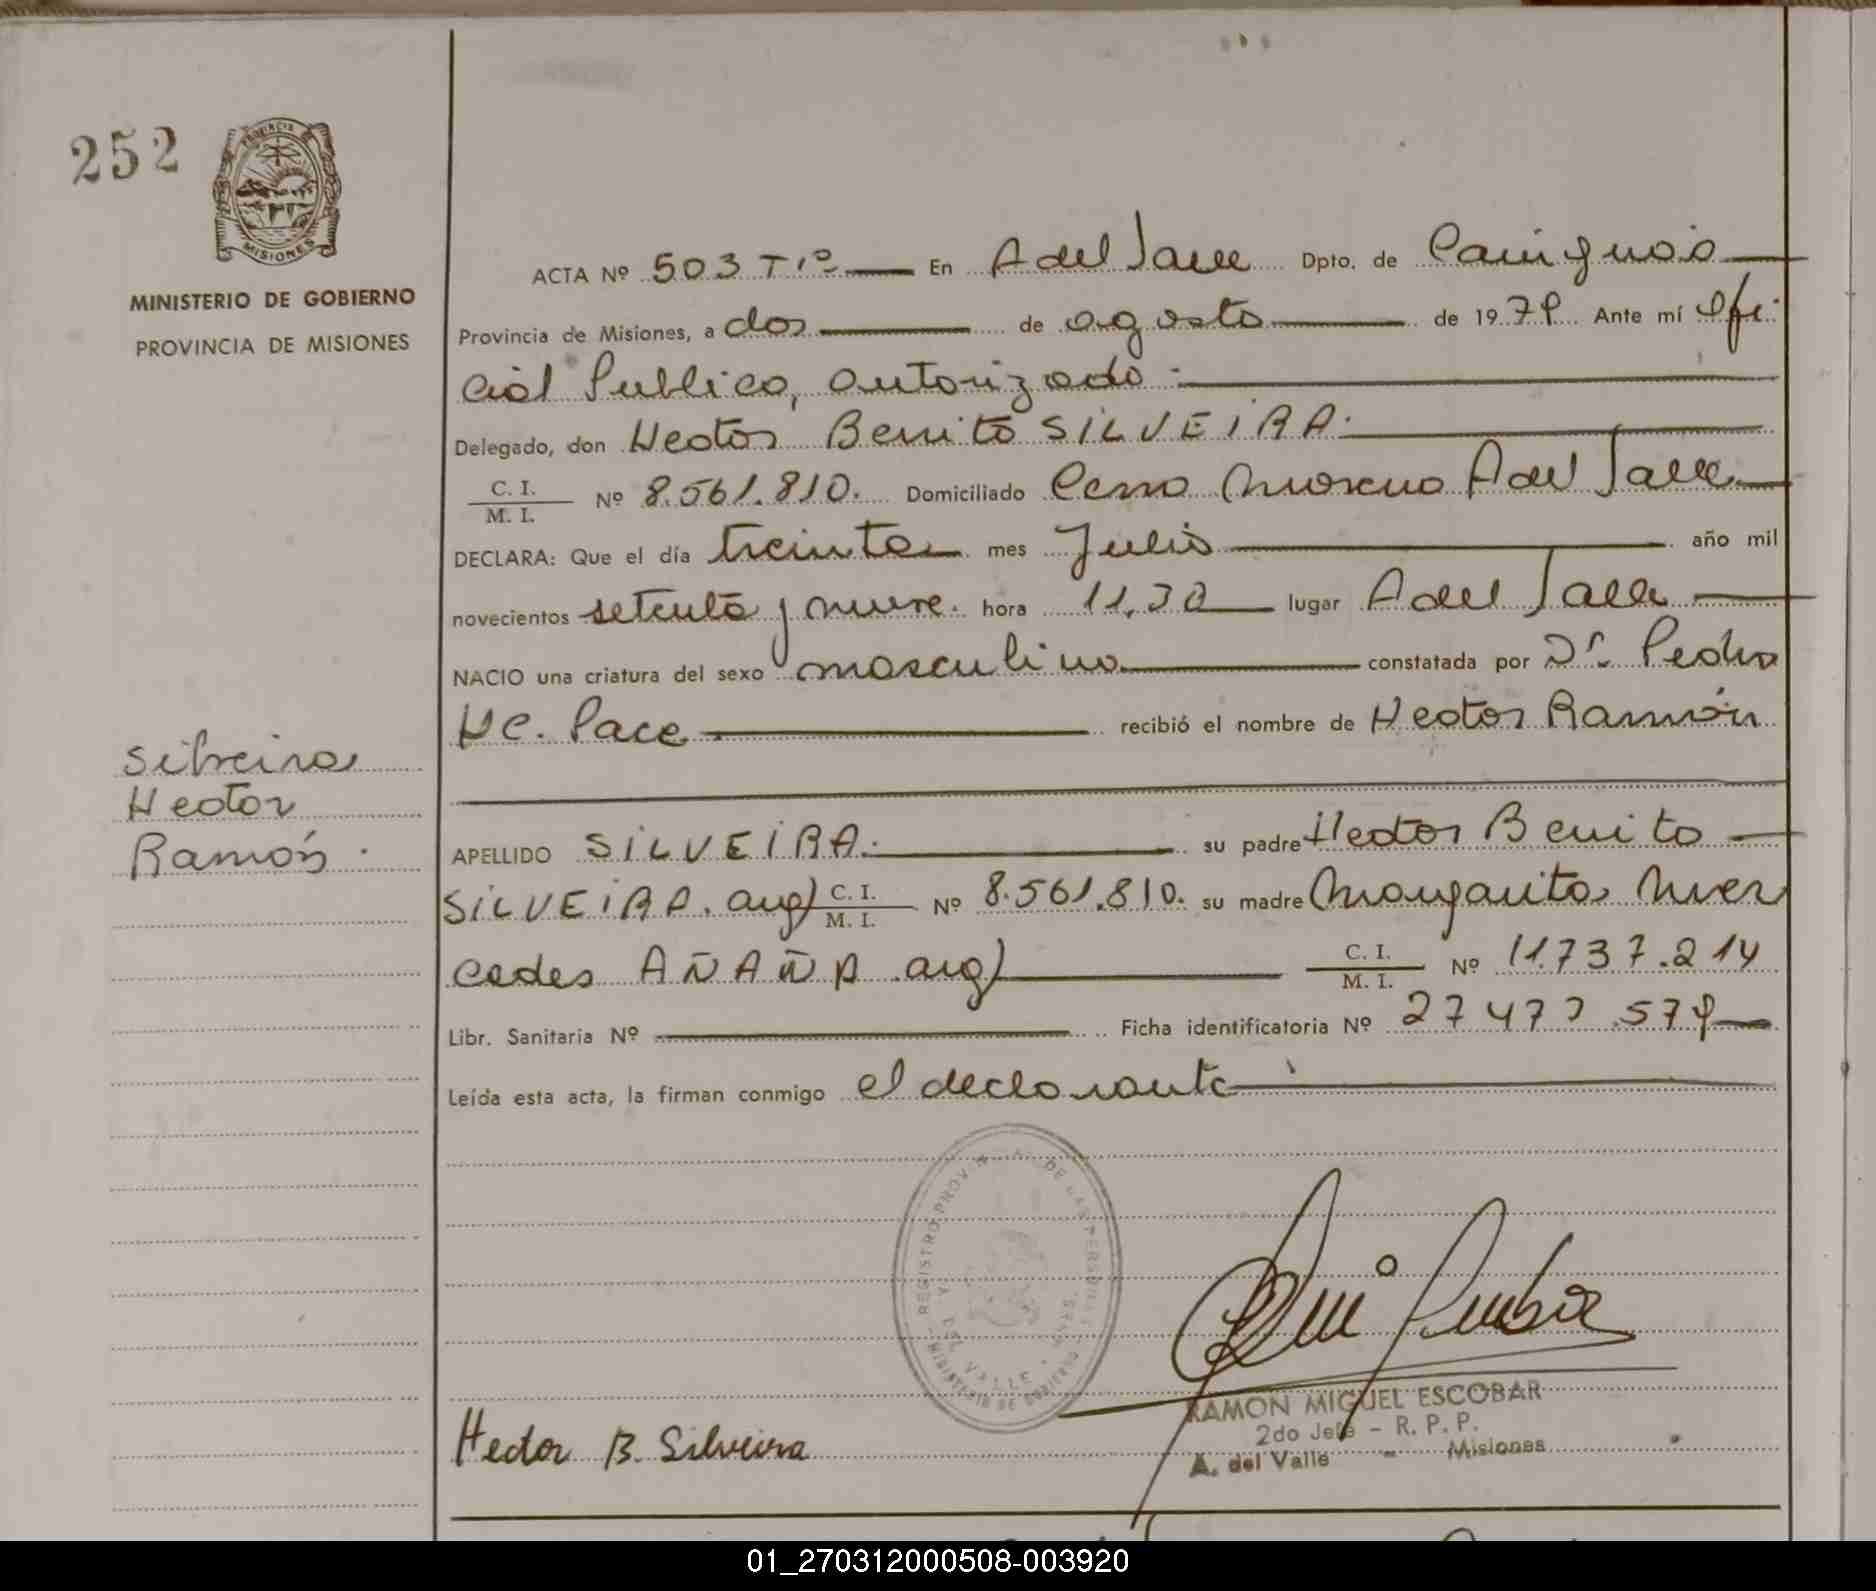 252
PROVINCIA
MISIONES
MINISTERIO DE GOBIERNO
PROVINCIA DE MISIONES
ACTA Nº 503 Tº 1º En A del Valle Dpto. de Cainguás
Provincia de Misiones, a dos de agosto de 1979 Ante mí Ofi
cial Publico, autorizado.
Delegado, don Hector Benito SILVEIRA.
C. I.
M. I. Nº 8.561.810. Domiciliado Cerro Moreno A del Valle
DECLARA: Que el día treinta mes Julio año mil
novecientos setenta y nueve. hora 11,30 lugar A del Valle
NACIO una criatura del sexo masculino constatada por Dr. Pedro
HC. Pace recibió el nombre de Hector Ramón
Silveira
Hector
Ramón.
APELLIDO SILVEIRA. su padre Hector Benito
SILVEIRA. arg) C. I.
M. I. Nº 8.561.810. su madre Margarita Mer
cedes AÑAÑA arg) C. I.
M. I. Nº 11.737.214
Libr. Sanitaria Nº Ficha identificatoria Nº 27477.579
Leída esta acta, la firman conmigo el declarante
REGISTRO PROV. DE LAS PERSONAS
A. DEL VALLE - MNES.
MINISTERIO DE GOBIERNO
RAMON MIGUEL ESCOBAR
2do Jefe - R. P. P.
A. del Valle - Misiones
Hector B. Silveira
01_270312000508-003920